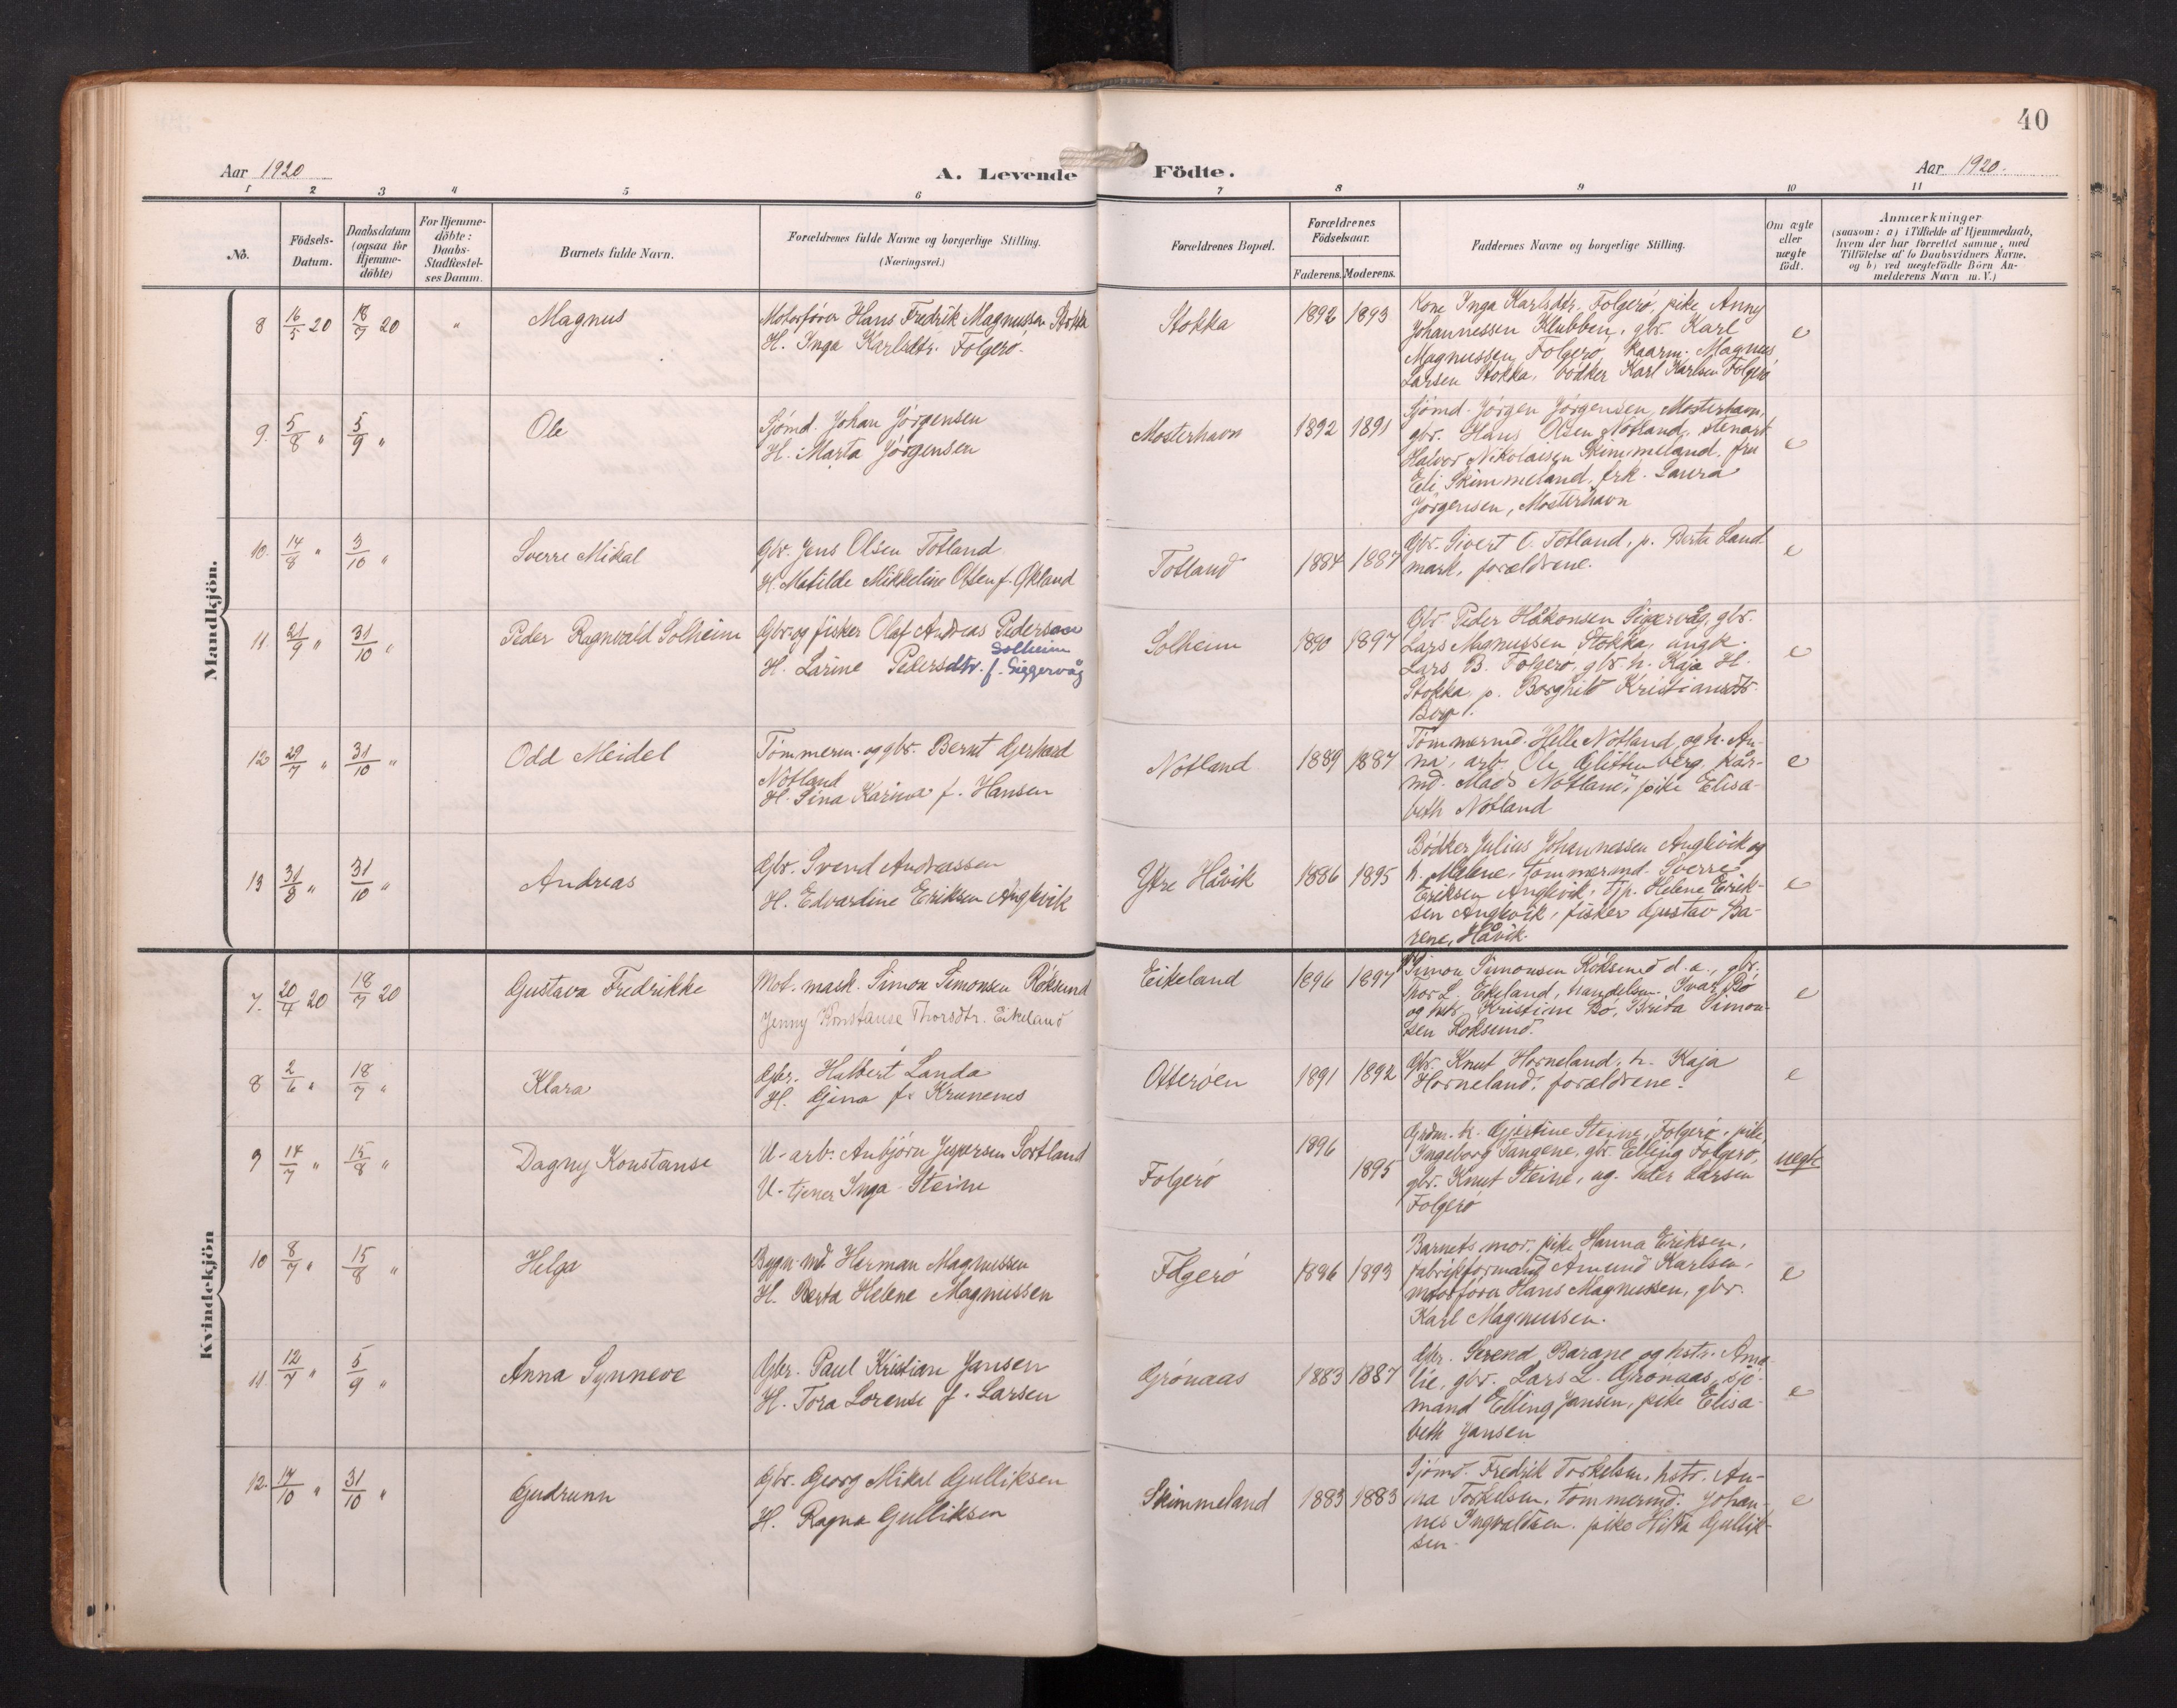 40
Aar 1920
A. Levende Födte.
Aar 1920.
1 2 3 4 5 6 7 8 9 10 11
No.
Födsels-
Datum.
Daabsdatum
(ogsaa for
Hjemme-
döbte)
For Hjemme-
döbte:
Daabs-
Stadfæstel-
ses Datum.
Barnets fulde Navn.
Forældrenes fulde Navne og borgerlige Stilling.
(Næringsvei.)
Forældrenes Bopæl.
Forældrenes
Födselsaar.
Faderens. Moderens.
Faddernes Navne og borgerlige Stilling.
Om ægte
eller
uægte
födt.
Anmærkninger
(saasom: a) i Tilfælde af Hjemmedaab,
hvem der har forrettet samme, med
Tilföielse af to Daabsvidners Navne.
og b) ved uegtefödte Börn An-
melderens Navn m. V.)
Mandkjön.
8 16/5 20 18/7 20 " Magnus
Motorfører Hans Fredrik Magnussen Stokka
H. Inga Karlsdtr. Folgerø.
Stokka 1892 1893
Kone Inga Karlsdtr. Folgerø, pike Anny
Johannessen Klubben, gbr. Karl
Magnussen Folgerø, kaarm. Magnus
Larsen Stokka, bødker Karl Karlsen Folgerø
e
9. 5/8 " 5/9 " Ole
Sjömd. Johan Jörgensen
H. Marta Jörgensen
Mosterhavn 1892 1891
Sjömd. Jörgen Jörgensen, Mosterhavn,
gbr. Hans Olsen Notland, stenarb.
Halvor Nikolaisen Skimmeland, fru
Eli Skimmeland, frk. Laura
Jörgensen, Mosterhavn
e
10. 14/8 " 3/10 " Sverre Mikal
Gbr. Jens Olsen Totland
H. Matilde Mikkeline Olsen f. Økland
Totland 1884 1887
Gbr. Sivert O. Totland, p. Berta Land
mark, forældrene.
e
11. 21/9 " 31/10 " Peder Ragnvald Solheim
Gbr. og fisker Olaf Andreas Pedersen
Solheim
H. Larine Pedersdtr. f. Siggervåg
Solheim 1890 1897
Gbr. Peder Håkonsen Siggervåg, gbr.
Lars Magnussen Stokka, ungk.
Lars B. Folgerø, gbr. h. Kaja H.
Stokka, p. Borghild Kristiansdtr.
Berg.
e
12 29/7 " 31/10 " Odd Meidel
Tömmerm. og gbr. Bernt Gerhard
Nötland
H. Sina Karina f. Hansen
Notland 1889 1887
Tömmermd. Helle Notland, og h. An-
na, arb. Ole Glittenberg, kår-
md. Mads Notland, pike Elisa-
beth Notland
e
13 31/8 " 31/10 " Andreas
Gbr. Svend Andreassen
H. Edvardine Eriksen Anglevik
Ytre Håvik 1886 1895
Bödker Julius Johannessen Anglevik og
h. Malene, tömmermd. Sverre
Eriksen Anglevik, tjp. Helene Erik-
sen Anglevik, fisker Gustav Ba-
rene, Håvik.
e
Kvindekjön
7. 20/4 20 18/7 20 Gustava Fredrikke
Mot. mask. Simon Simonsen Röksund
Jenny Konstanse Thorsdtr. Eikeland
Eikeland 1896 1897
Simon Simonsen Röksund d. a., gbr.
Thor L. Ekeland, handelsm. Ivar Bö
og hstr. Kristine Bö, Brita Simon-
sen Roksund.
e
8 2/6 " 18/7 " Klara
Gbr. Halbert Landa
H. Gina f. Krunenes
Otteröen 1891 1892
Gbr. Knut Horneland, h. Kaja
Horneland, forældrene.
e
9 14/7 " 15/8 " Dagny Konstanse
U-arb. Anbjörn Jespersen Sortland
U-tjener Inga Steine
Folgerö 1896 1895
Grdm. h. Gjertine Steine, Folgerø, pike
Ingeborg Tangene, gbr. Elling Folgerø,
gbr. Knut Steine, ug. Peder Larsen
Folgerö
uegte
10 8/7 " 15/8 " Helga
Bygn. md. Herman Magnussen
H. Berta Helene Magnussen
Folgerö 1896 1893
Barnets mor, pike Hanna Eriksen,
fabrikformand Amund Karlsen,
motorfører Hans Magnussen, gbr.
Karl Magnussen.
e
11. 12/7 " 5/9 " Anna Synneve
Gbr. Paul Kristian Jansen
H. Tora Lorense f. Larsen
Grönaas 1883 1887
Gbr. Svend Barane og hstr. Ama-
lie, gbr. Lars L. Grönaas, sjö-
mand Elling Jansen, pike Elisa-
beth Jansen
e
12. 14/10 " 31/10 " Gudrunn
Gbr. Georg Mikal Gulliksen
H. Ragna Gulliksen
Skimmeland 1883 1883
Sjömd. Fredrik Torkelsen, hstr. An-
na Torkelsen, tömmermd. Johan-
nes Ingvaldsen, pike Hilda Gullik-
sen.
e